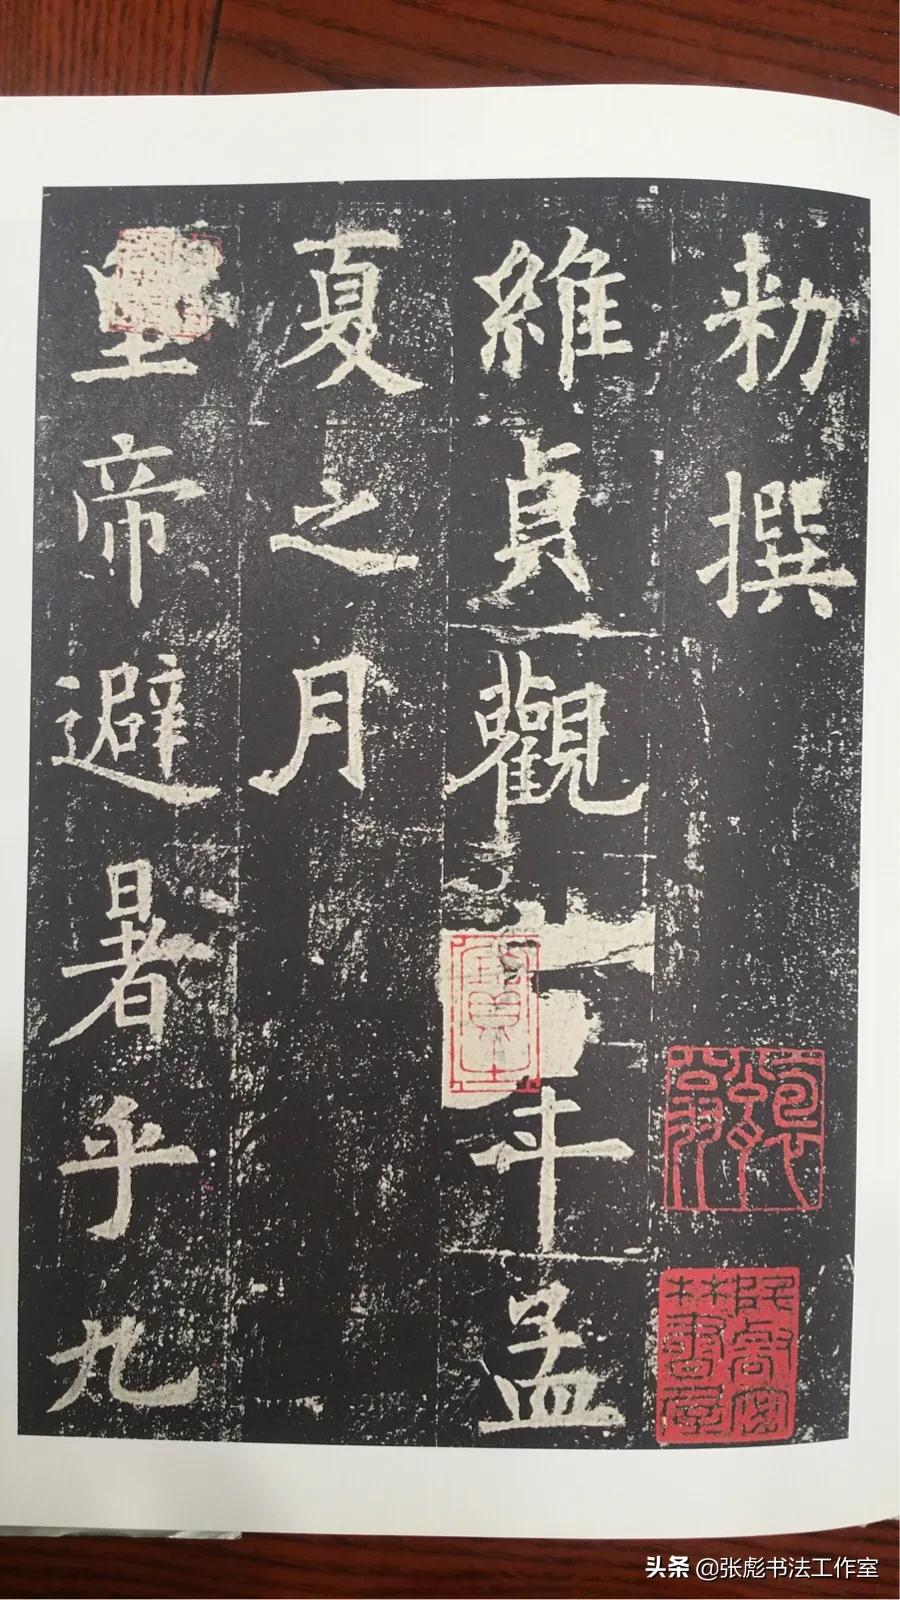 勅撰
維貞觀年孟
夏之月
皇帝避暑乎九
头条 @张彪书法工作室